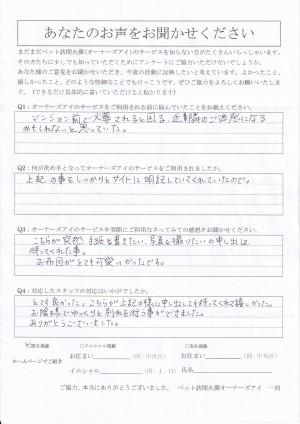 あなたのお声をお聞かせください
まだまだペット訪問火葬(オーナーズアイ)のサービスを知らない方がたくさんいらっしゃいます。
その方たちに少しでも知っていただくためにアンケートにご協力いただけないでしょうか。
あなた様のご意見をお聞かせいただき、今後の活動に反映したいと考えています。よかったこと、
嬉しかったこと、どのような些細なことでもけっこうです。ぜひご協力をよろしくお願いいたします。
(できるだけ具体的に書いていただけると助かります)
Q1:オーナーズアイのサービスをご利用される前に悩んでいたことをお教えください。
マンション前で火葬されると困る、近隣のご迷惑になる
かもしれないと思っていた。
Q2:何が決め手となってオーナーズアイのサービスをご利用されましたか。
上記の事をしっかりとサイトに明記していてくれていたので。
Q3:オーナーズアイのサービスを実際にご利用なさってみての感想をお聞かせください。
こちらが突然、手紙を書きたい、写真を撮りたいの申し出に
待ってくれた事。
お布団がとても可愛いかったです。
Q4:対応したスタッフの対応はいかがでしたか。
とても良かった。こちらが上記の様に申し出しても待ってくれて嬉しかった。
お陰様でゆっくりと別れを行う事ができました。
ありがとうございました。
匿名掲載 □イニシャル掲載 □実名掲載
ホームページでご紹介
お住まい (例:中央区) お住まい (例:中央区)
イニシャル (例:J.H) 氏名
ご協力、本当にありがとうございました。 ペット訪問火葬オーナーズアイ 一同